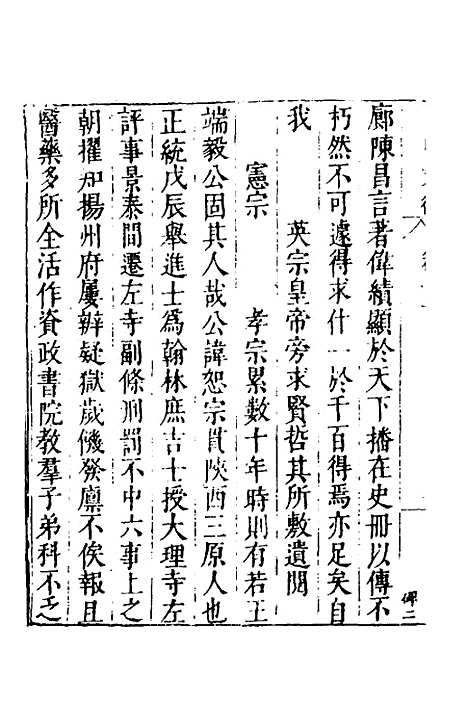 廊陳昌言著偉績顯於天下播在史冊以傳不
朽然不可遽得求什一於千百得焉亦足矣自
我　英宗皇帝旁求賢哲其所敷遺閱
憲宗　孝宗累數十年時則有若王
端毅公固其人哉公諱恕宗貫陝西三原人也
正統戊辰舉進士爲翰林庶吉士授大理寺左
評事景泰間遷左寺副條刑罰不中六事上之
朝擢知揚州府屢辨疑獄歲饑發廩不俟報且
醫藥多所全活作資政書院教羣子弟科不乏
碑二